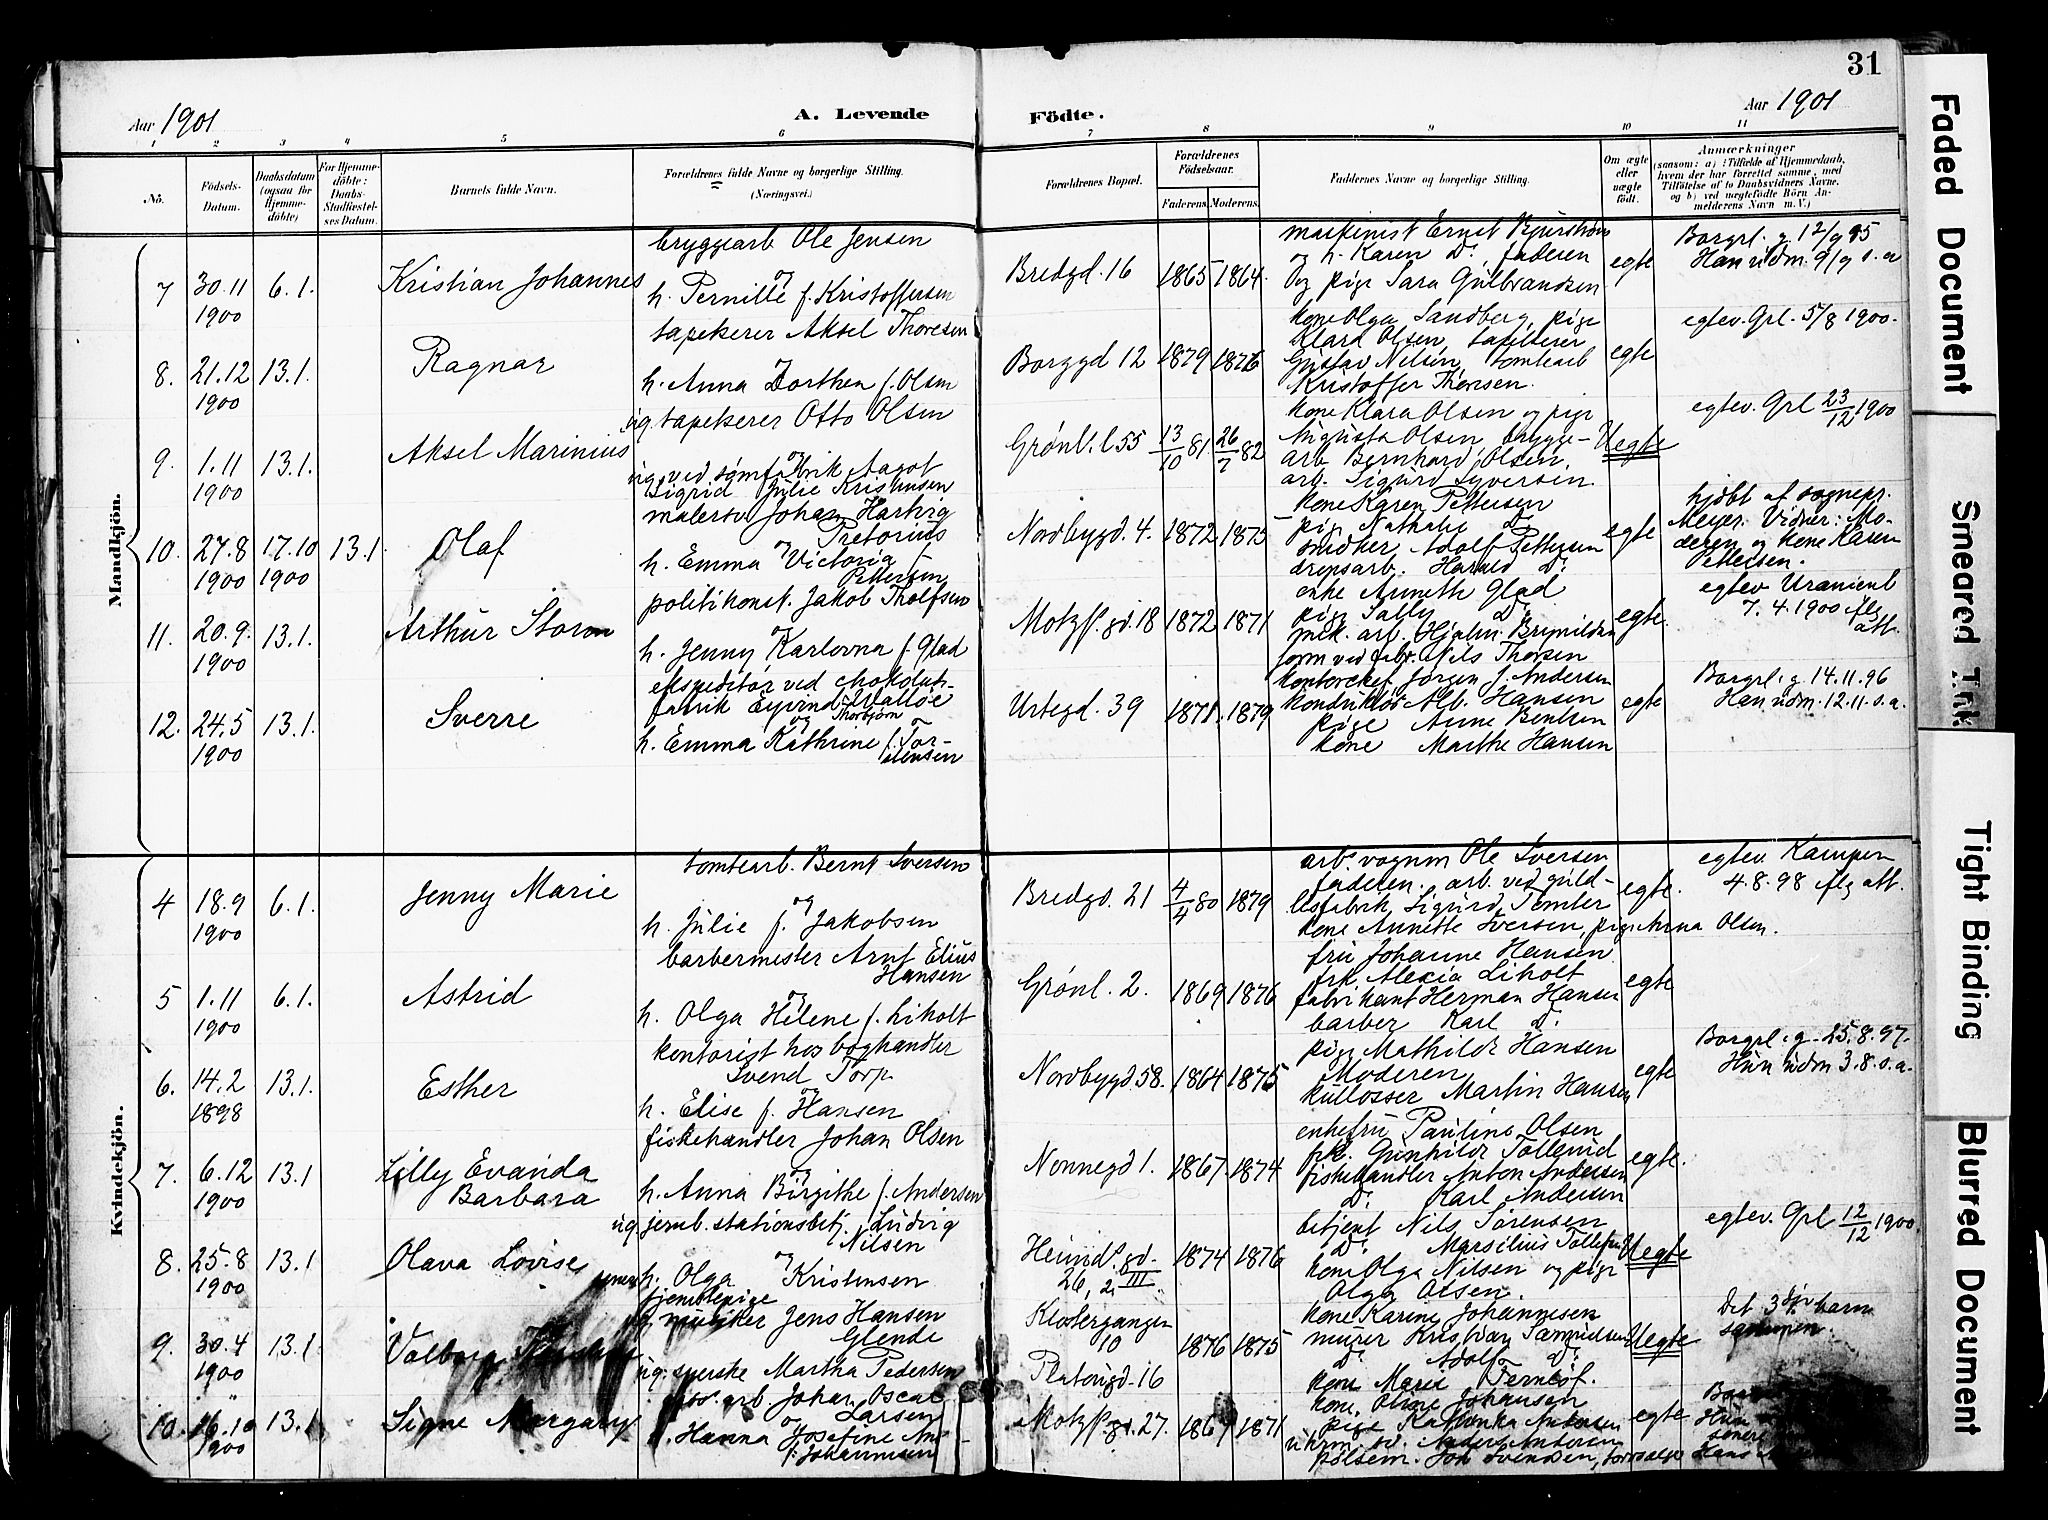 31
Aar 1901
A. Levende
Födte.
Aar 1901
1 2 3 4 5 6 7 8 9 10 11
No.
Födsels-Datum.
Daabsdatum (ogsaa for Hjemme-döbte)
For Hjemme-döbte: Daabs-Stadfæstelses Datum.
Barnets fulde Navn.
Forældrenes fulde Navne og borgerlige Stilling.
(Næringsvei.)
Forældrenes Bopæl.
Forældrenes Födselsaar.
Faderens. Moderens.
Faddernes Navne og borgerlige Stilling.
Om ægte eller uægte födt.
Anmærkninger
(saasom: a) i Tilfælde af Hjemmedaab, hvem der har forrettet samme, med Tilföielse af to Daabsvidners Navne, og b) ved uægtefödte Börn Anmelderens Navn m. V.)
Mandkjön.
7 30.11 1900 6.1. Kristian Johannes
bryggearb Ole Jensen
og
h. Pernille f. Kristoffersen
Bredgd. 16 1865 1864.
maskinist Ernst
og h. Karen Do, faderen
og pige Sara Gulbrandsen
egte
Borgrl. g. 12/9 95
Han udm. 9/9 s.a
8. 21.12 1900 13.1. Ragnar
tapetserer Aksel Thoresen
h. Anna Dorthea f. Olsen
Borggd 12 1879 1876
kone Olga Sandberg, pige
Klara Olsen, tapetserer
Gustav Nilsen, tomtearb
Kristoffer Thoresen.
egte
egtev. Grl. 5/8 1900.
9. 1.11 1900 13.1. Aksel Marinius
ug. tapetserer Otto Olsen
og
ug. ved sømfabrik Aagot
Sigrid Julie Kristensen
Grønl. l 55 13/10 81 26/7 82
kone Klara Olsen og pige
Augusta Olsen, brygge-
arb Bernhard Olsen,
arb. Sigurd Syversen
Uegte
egtev. Grl 23/12 1900
10. 27.8 1900 17.10 1900 13.1 Olaf
malersv Johan Hartvig
Pretorius
og
h. Emma Victoria f.
Pettersen
Nordbygd. 4. 1872 1875
kone Karen Pettersen
pige Nathalie Do
snidker Adolf Pettersen
drengsarb. Harald Do
egte
hjdbt af sognepr.
Meyer. Vidner: Mo-
deren og kone Karen
Pettersen.
11. 20.9. 1900 13.1. Arthur Storm
politikonst. Jakob Tholfsen
og
h. Jenny Karlovna f. Glad
Motzf. gd. 18 1872 1871
enke Annette Glad
pige Sally Do
mek. arb. Hjalm. Brynildsen
form ved fabr. Nils Thorsen
egte.
egtev Uranienb
7.4.1900 iflg
att.
12. 24.5 1900 13.1. Sverre
ekspeditør ved chokolade-
fabrik Eyvind Thorbjørn Walløe
og
h. Emma Kathrine f. Tor-
stensen
Urtegd. 39 1871. 1879
kontorchef Jørgen J. Andersen
konduktør Alb. Hansen
pige Anne Bentsen
kone Marthe Hansen
egte
Borgrl. g 14.11.96
Han udm. 12.11. s.a.
Kvindekjön.
4 18.9 1900 6.1. Jenny Marie
tomtearb. Bernt Iversen
og
h. Julie f. Jakobsen
Bredgd. 21 4/4 80 1879
arb. vognm Ole Iversen
faderen. arb. ved guld-
listfabrik Sigurd Temter
kone Annette Iversen, pige Anna Olsen.
egte.
egtev Kampen
4.8.98 iflg att.
5 1.11 1900 6.1. Astrid
barbermester Arnt Elius
Hansen
og
h. Olga Helene f. Liholt
Grønl. 2. 1869 1876
fru Johanne Hansen
frk. Alexia Liholt
fabrikant Herman Hansen
barber Karl Do
egte
6. 14.2 1898 13.1. Esther
kontorist hos boghandler
Svend Torp
og
h. Elise f. Hansen
Nordbygd 58. 1864 1875
pige Mathilde Hansen
Moderen
kullosser Martin Hansen
egte
Borgrl. g. 25.8.97.
Hun udm 3.8. s.a.
7. 6.12 1900 13.1 Lilly Evanda
Barbara
fiskehandler Johan Olsen
og
h. Anna Birgithe f. Andersen
Nonnegd 1. 1867 1874
enkefru Pauline Olsen
frk. Gunhilde Tollerud
fiskehandler Anton Andersen
Do Karl Andersen
egte.
8. 25.8 1900 13.1 Olava Lovise
ug. jernb. stationsbetj. Ludvig
Nilsen
og
h. Olga Kristensen
tjenstepige
Heimd. gd.
26, 2. III 1874 1876
betjent Nils Sørensen
Do Marsilius Tollefsen
kone Olga Nilsen og pige
Olga Olsen.
Uegte
egtev. Grl 12/12 1900.
9. 30.4 1900 13.1 Valborg
musiker Jens Hansen
Glende
ug. syerske Martha Pedersen
Klostergangen
10
Platousgd. 16 1876 1875
kone Karine Johannesen
murer Kristian Samuelsen
Do Adolf Do
kone Marie Ternlöf.
Uegte
Det 3die barn
sammen.
10. 16.10 1900 13.1 Signe Margary
fos. arb Johan Oscar
Larsen
og
h. Hanna Josefine
f. Johannesen
Motzf. gd. 27. 1869 1871
kone Oline Johansen
pige Kathinka Andersen
urm. sv. Anders Andersen
pølsem. Joh Svendsen,
egte
Hun
Hans
Faded Document
Smeared Ink
Tight Binding
Blurred Document